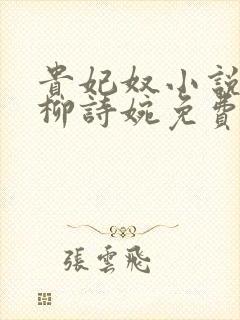 貴妃奴小說
柳詩婉免費
張雲飛